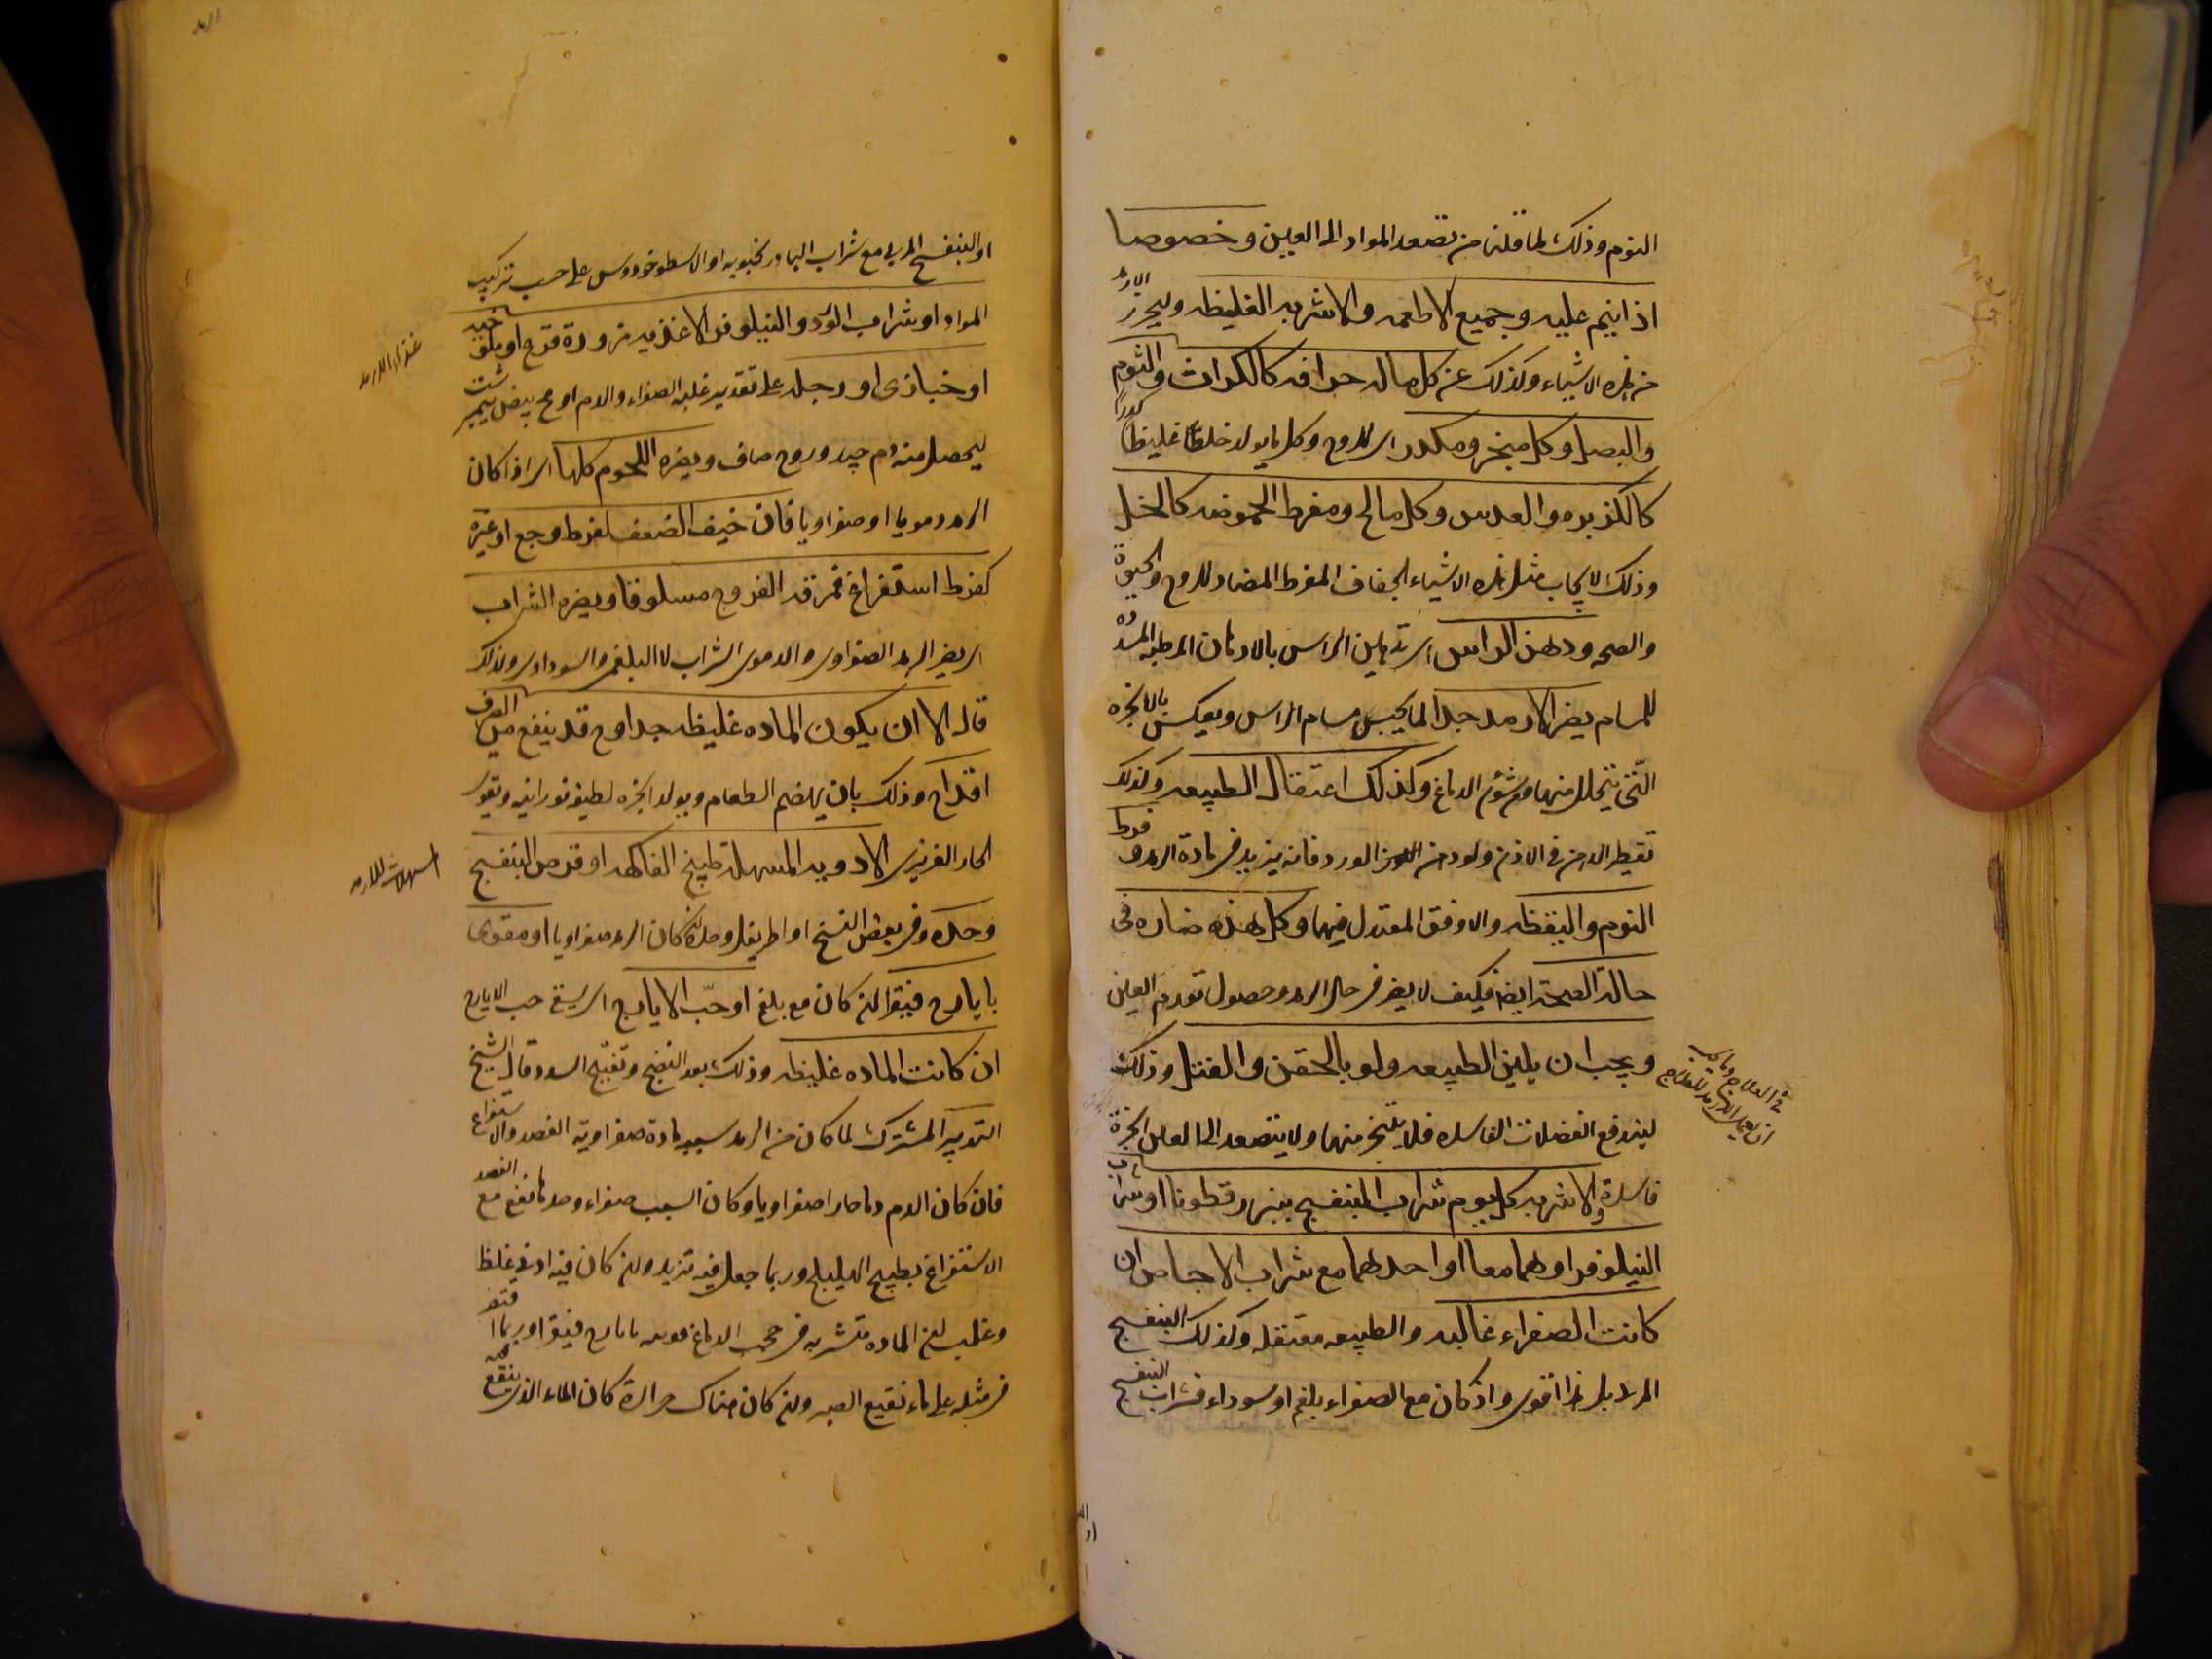 النوم وذلك لما قلنا من تصعد المواد الى العين وخصوصا
اذا نيم عليه وجميع الاطعمه والاشربه الغليظه وليحرز الارمد
من هذه الاشياء وكذلك عن كل ماله حرافه كالكراث والثوم
والبصل وكل مبخر ومكدر اى للروح وكل ما يولد خلطا غليظا كدرا
كالكزبره والعدس وكل مالح ومفرط الحموضه كالخل
وذلك لايجاب مثل هذه الاشياء الجفاف المفرط المضاد للروح والحيوة
والصحه ودهن الراس اى تدهين الراس بالادهان الرطبه المسدده
للمسام يضر الارمد جدا لما يحبس مسام الراس ويعكس بالابخره
التى تتحلل منها من شؤن الدماغ وكذلك اعتقال الطبيعه وكذلك
تقطير الدهن فى الاذن ولو دهن الورد فانه يزيد فى مادة الرمد وفرط
النوم واليقظه والاوفق المعتدل فيهما وكل هذه ضاره فى
حالة الصحة ايضا فكيف لا يضر فى حال الرمد وحصول تورم العين
ويجب ان يلين الطبيعه ولو بالحقن والفتل وذلك
ليندفع الفضلات الفاسده فلا يتبخر منها ولا يتصعد الى العين ابخرة
فاسدة والاشربه كل يوم شراب البنفسج ببزر قطونا او شراب
النيلوفر او هما معا او احدهما مع شراب الاجاص ان
كانت الصفراء غالبه والطبيعه معتقله وكذلك البنفسج
المربا بل هذا اقوى واذ كان مع الصفراء بلغم او سوداء فشراب البنفسج
فى العلاج وما يجب
ان يعمل الارمد للعلاج
او البنفسج المربى مع شراب البادرنجبويه او الاسطوخودوس على حسب تركيب
المواد او شراب الورد والنيلوفر الاغذيه مزورة قرع او ملوخيه
او خبازى او رجله على تقدير غلبه الصفراء والدم او مح بيض نيمبرشت
ليحصل منه دم جيد وروح صاف ويضره اللحوم كلها اى اذا كان
الرمد دمويا او صفراويا فان خيف الضعف لفرط وجع او غيره
كفرط استفراغ فمرقة الفروج مسلوقا ويضره الشراب
اى يضر الرمد الصفراوى والدموى الشراب لا البلغمى والسوداوى ولذلك
قال الا ان يكون الماده غليظه جدا وح قد ينفع من الصرف
اقداح وذلك بان يهضم الطعام ويولد ابخره لطيفه نورانيه وتقوى
الحار الغريزى الادويه المسهلة طبيخ الفاكهه او قرص البنفسج
وحده وفى بعض النسخ او اطريفل وحده ان كان الرمد صفراويا او مقوى
بايارج فيقرا ان كان مع بلغم او حب الايارج اى يسقى حب الايارج
ان كانت الماده غليظه وذلك بعد النضج وتفتيح السدد قال الشيخ
التدبير المشترك لما كان من الرمد سببه مادة صفراوية الفصد والاستفراغ
فان كان الدم دما حارا صفراويا او كان السبب صفراء وحدها نفع مع الفصد
الاستفراغ بطبيخ الهليلج وربما جعل فيه تربد وان كان فيه ادنى غلظ
وعلمت ان الماده متشربه فى حجب الدماغ قويته بايارج فيقرا وربما
فى مثله على ماء نقيع الصبر وان كان هناك حرارة كان الماء الذى ينقع
غذاء الارمد
المسهلات للارمد